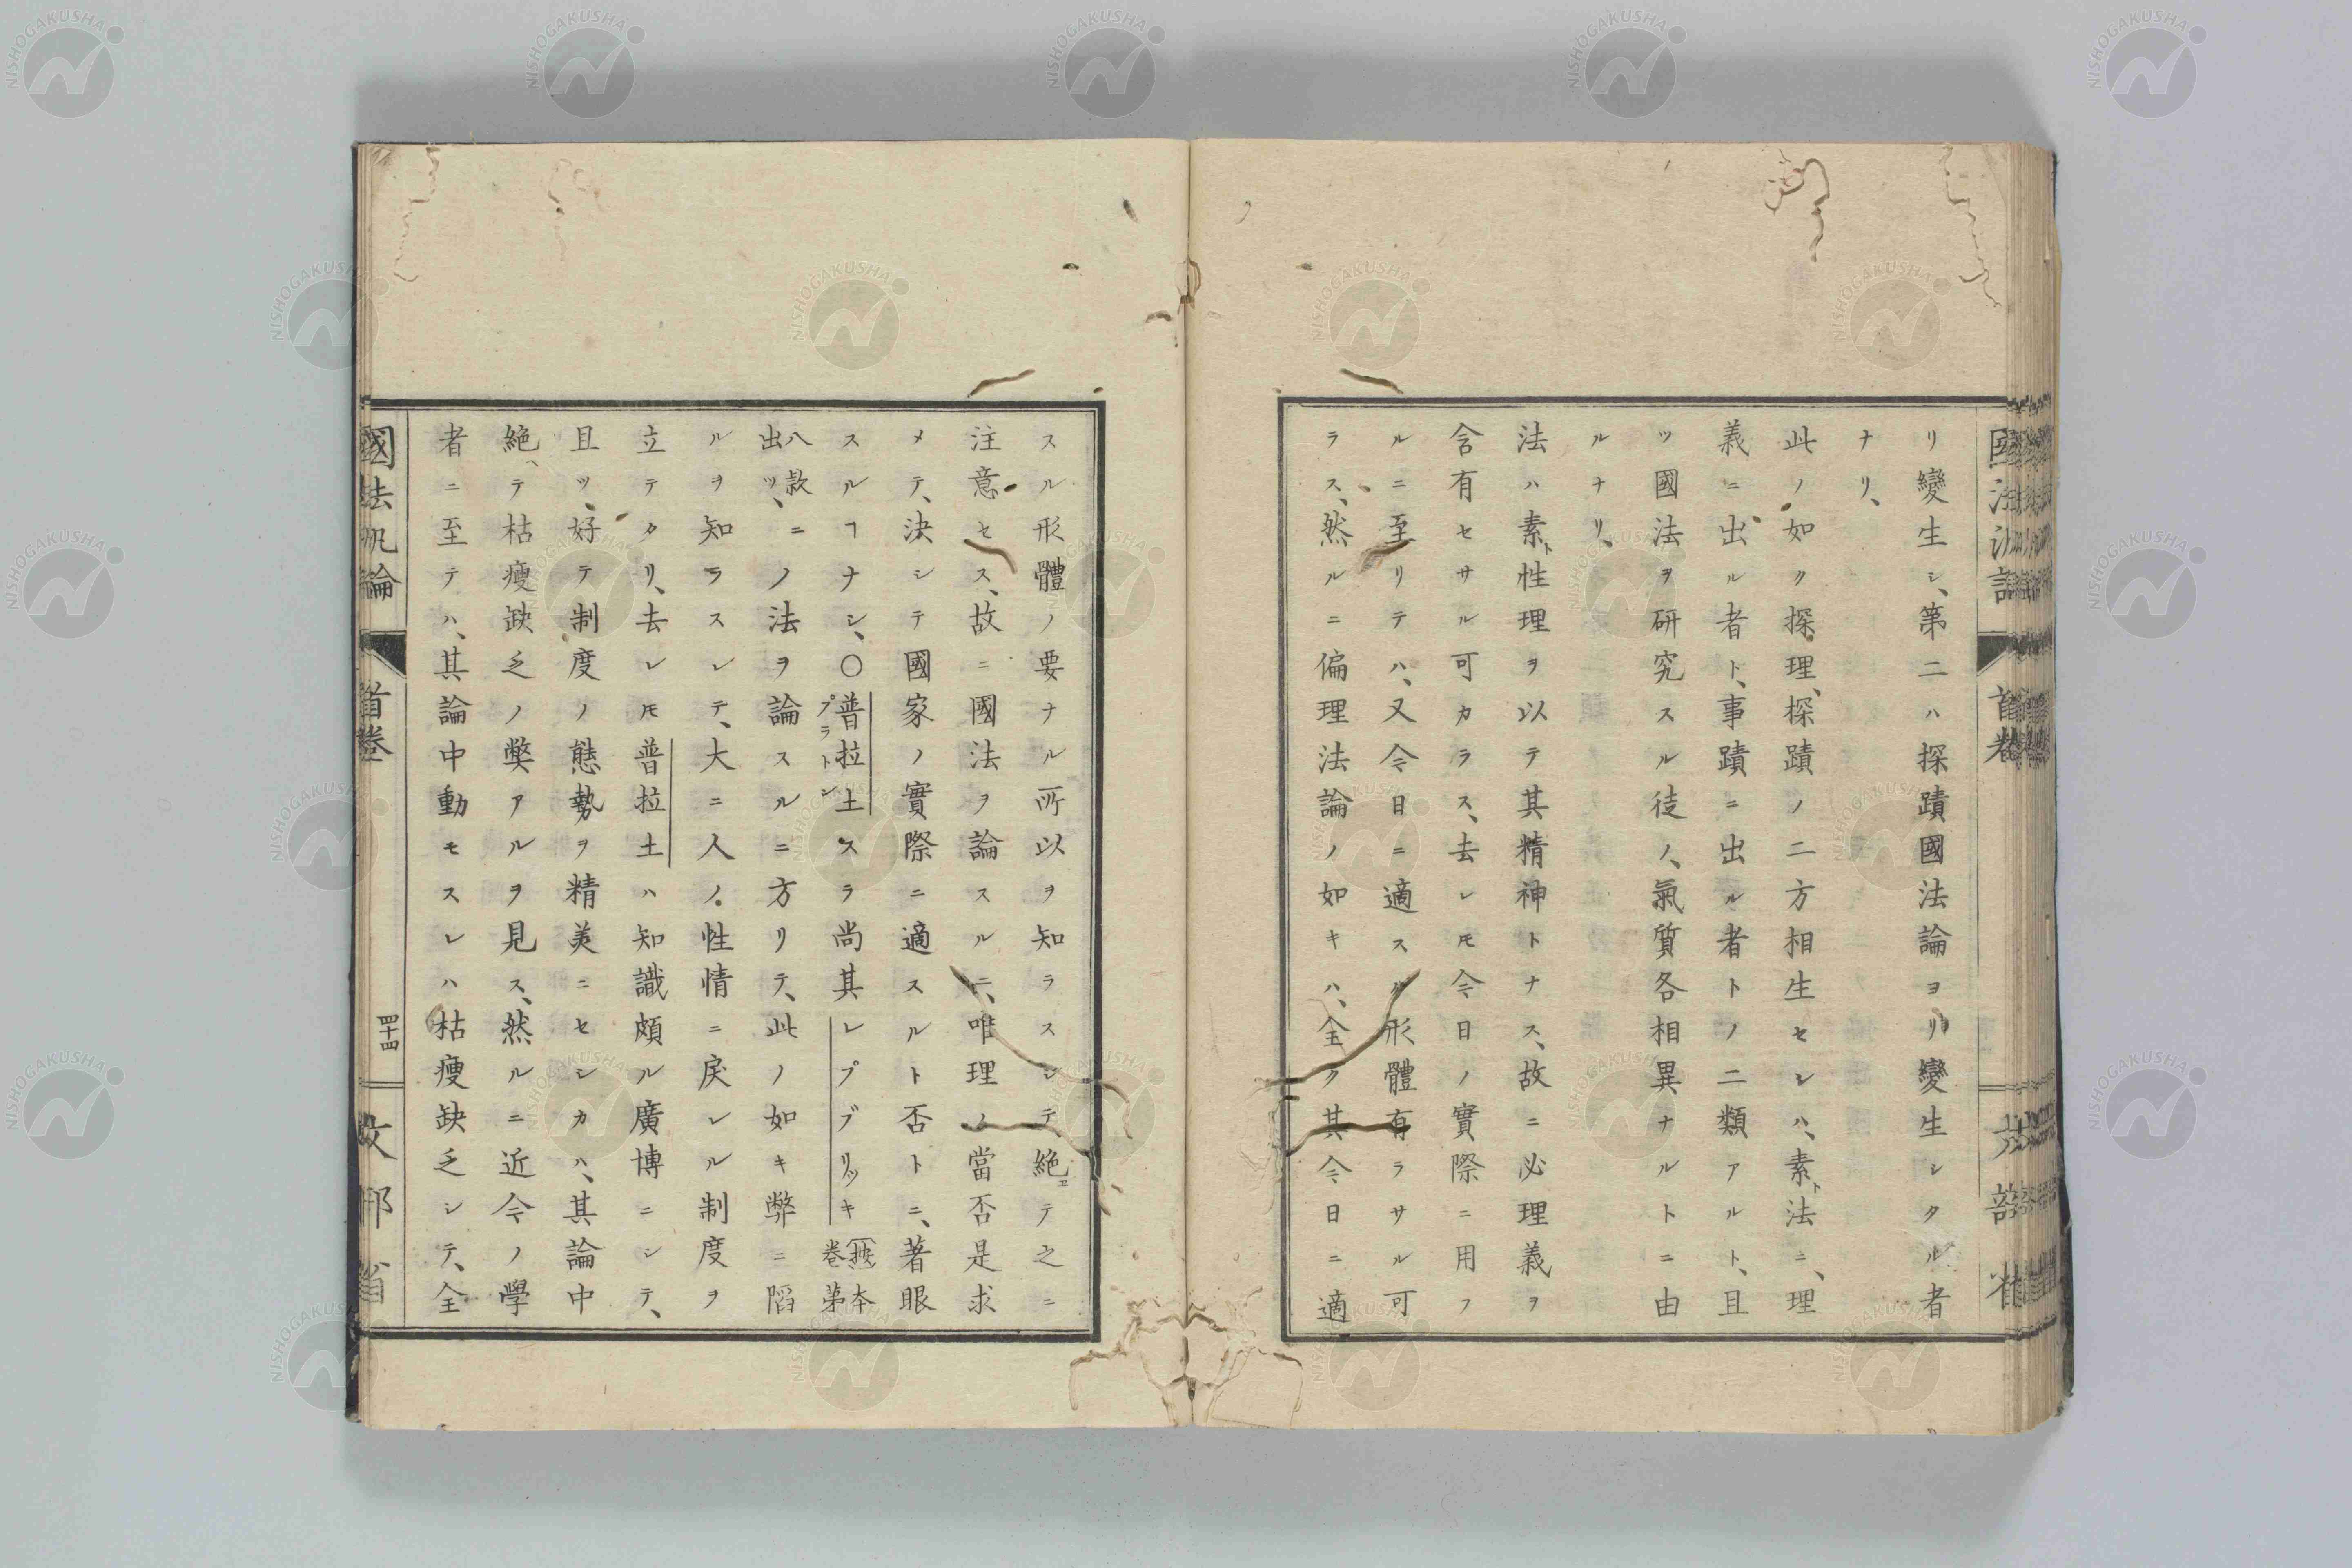 リ變生シ、第二ハ探蹟國法論ヨリ變生シタル者
ナリ、
此ノ如ク探理、探蹟ノ二方相生セシハ、素ト法ニ、理
義ニ出ル者ト、事蹟ニ出ル者トノ二類アルト、且
ツ國法ヲ研究スル徒ノ、氣質各相異ナルトニ由
ルナリ、
法ハ素ト性理ヲ以テ其精神トナス、故ニ必理義ヲ
含有セサル可カラス、去レ𪜈今日ノ實際ニ用フ
ルニ至リテハ、又今日ニ適スル形體有ラサル可
ラス、然ルニ偏理法論ノ如キハ、全ク其今日ニ適
スル形體ノ要ナル所以ヲ知ラスシテ絶エテ之ニ
注意セス、故ニ國法ヲ論スルニ、唯理ノ當否是求
メテ、決シテ國家ノ實際ニ適スルト否トニ、著眼
スルヿナシ、〇普拉土スラ尚其レプブリッキ(按本卷第
プラトン
八款出ツ、ニノ法ヲ論スルニ方リテ、此ノ如キ弊ニ陷
ルヲ知ラスレテ、大ニ人ノ性情ニ戻レル制度ヲ
立テタリ、去レ𪜈普拉土ハ知識頗ル廣博ニシテ、
且ツ、好テ制度ノ態勢ヲ精美ニセシカハ、其論中
絶ヘテ枯瘦缺乏ノ弊アルヲ見ス、然ルニ近今ノ學
者ニ至テハ、其論中動モスレハ枯瘦缺乏シテ、全
國法汎論
首卷
四十四
文部省